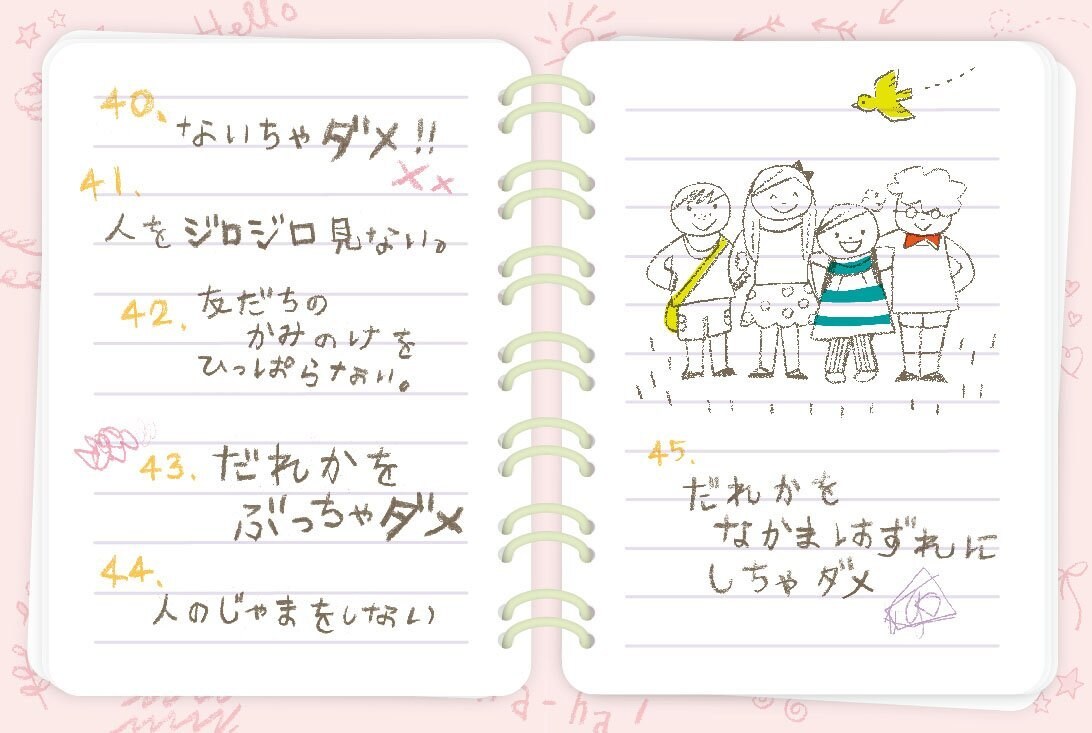 Hello
40.
ないちゃダメ!!
41.
人をジロジロ見ない。
42. 友だちの
かみのけを
ひっぱらない。
43. だれかを
ぶっちゃダメ
44.
人のじゃまをしない
45.
だれかを
なかまはずれに
しちゃダメ
a-ha!